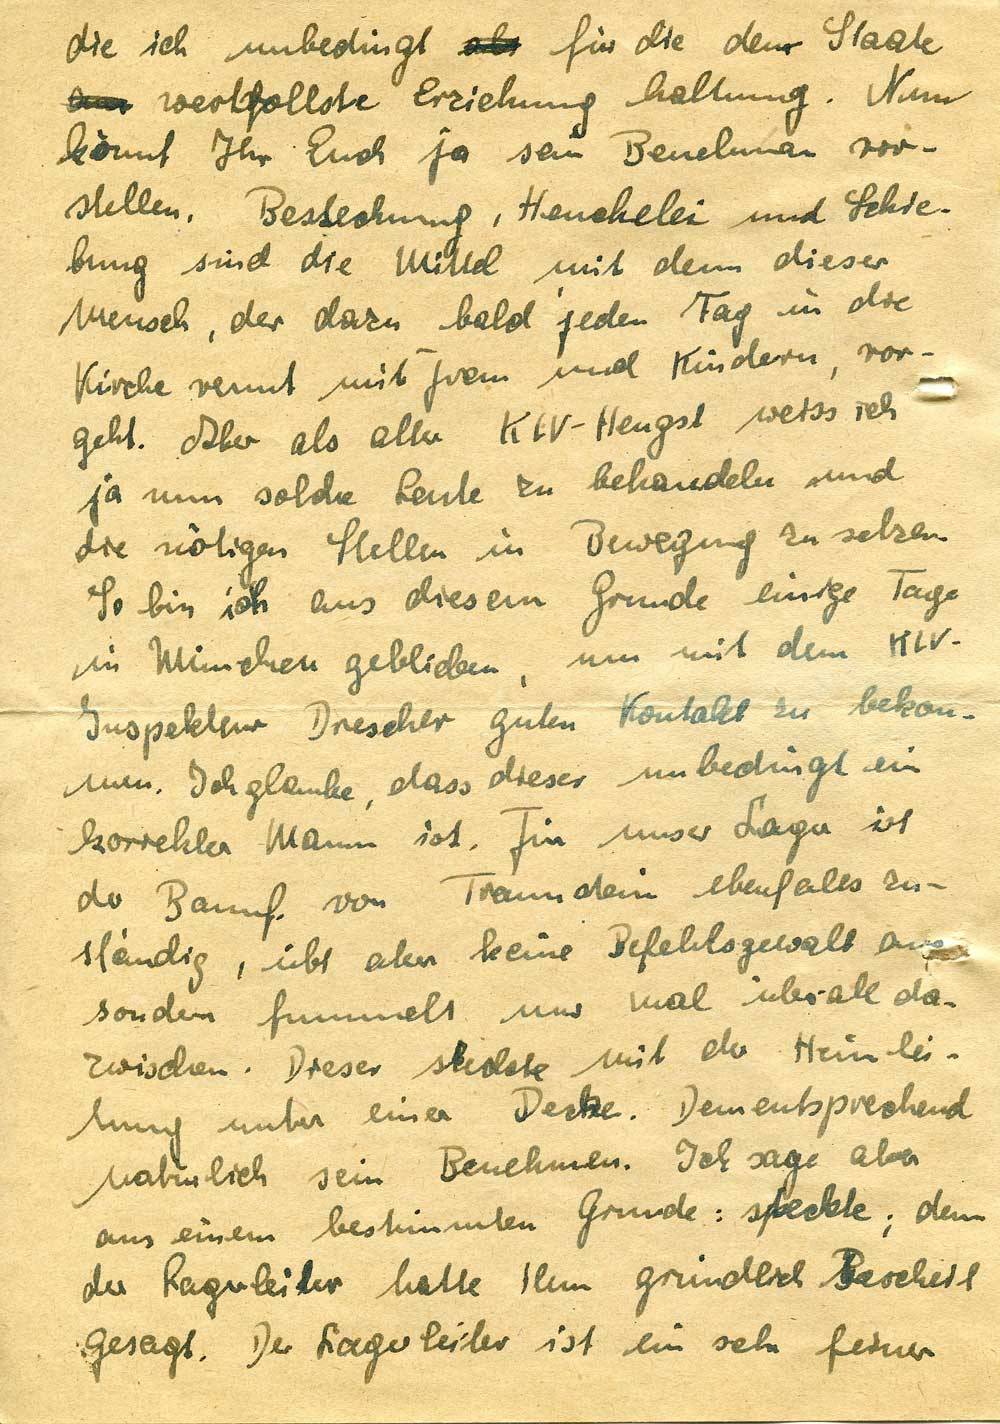 die ich unbedingt für die dem Staate
wertfollste Erziehung haltung. Nun
könnt Ihr Euch ja sein Benehmen vor-
stellen. Bestechung, Heuchelei und Schie-
bung sind die Mittel mit denen dieser
Mensch, der dazu bald jeden Tag in die
Kirche rennt mit Frau und Kindern, vor-
geht. Aber als alter KLV-Hengst weiss ich
ja nun solche Leute zu behandeln und
die nötigen Stellen in Bewegung zu setzen
So bin ich aus diesem Grunde einige Tage
in München geblieben, um mit dem KLV-
Inspekteur Drescher guten Kontakt zu bekom-
men. Ich glaube, dass dieser unbedingt ein
korrekter Mann ist. Für unser Lager ist
der Bannf. von Traunstein ebenfalls zu-
ständig, übt aber keine Befehlsgewalt aus
sondern fummelt nur mal überall da-
zwischen. Dieser steckte mit der Heimlei-
tung unter einer Decke. Dementsprechend
natürlich sein Benehmen. Ich sage aber
aus einem bestimmten Grunde: steckte; denn
der Lagerleiter hatte Ihm gründlich Bescheit
gesagt. Der Lagerleiter ist ein sehr feiner